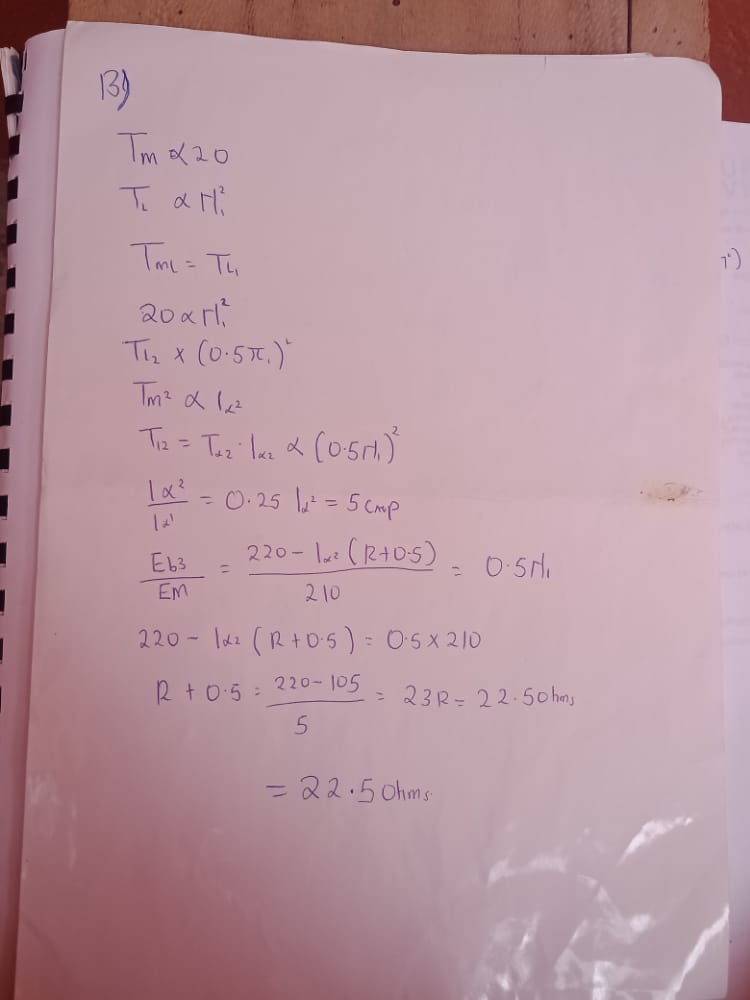 13)
Tm ∝ 20
T_L ∝ n₁²
T_m1 = T_L1
20 ∝ n₁²
T_L2 × (0.5n₁)²
Tm² ∝ I_α²
T_12 = T_α2 · I_α2 ∝ (0.5n₁)²
Iα²/Iα¹ = 0.25 I_α² = 5 amp
Eb3/Em = 220 - I_α2 (R+0.5)/210 = 0.5n₁
220 - I_α2 (R + 0.5) = 0.5 × 210
R + 0.5 = 220 - 105/5 = 23R = 22.5 Ohms
= 22.5 Ohms.
²)